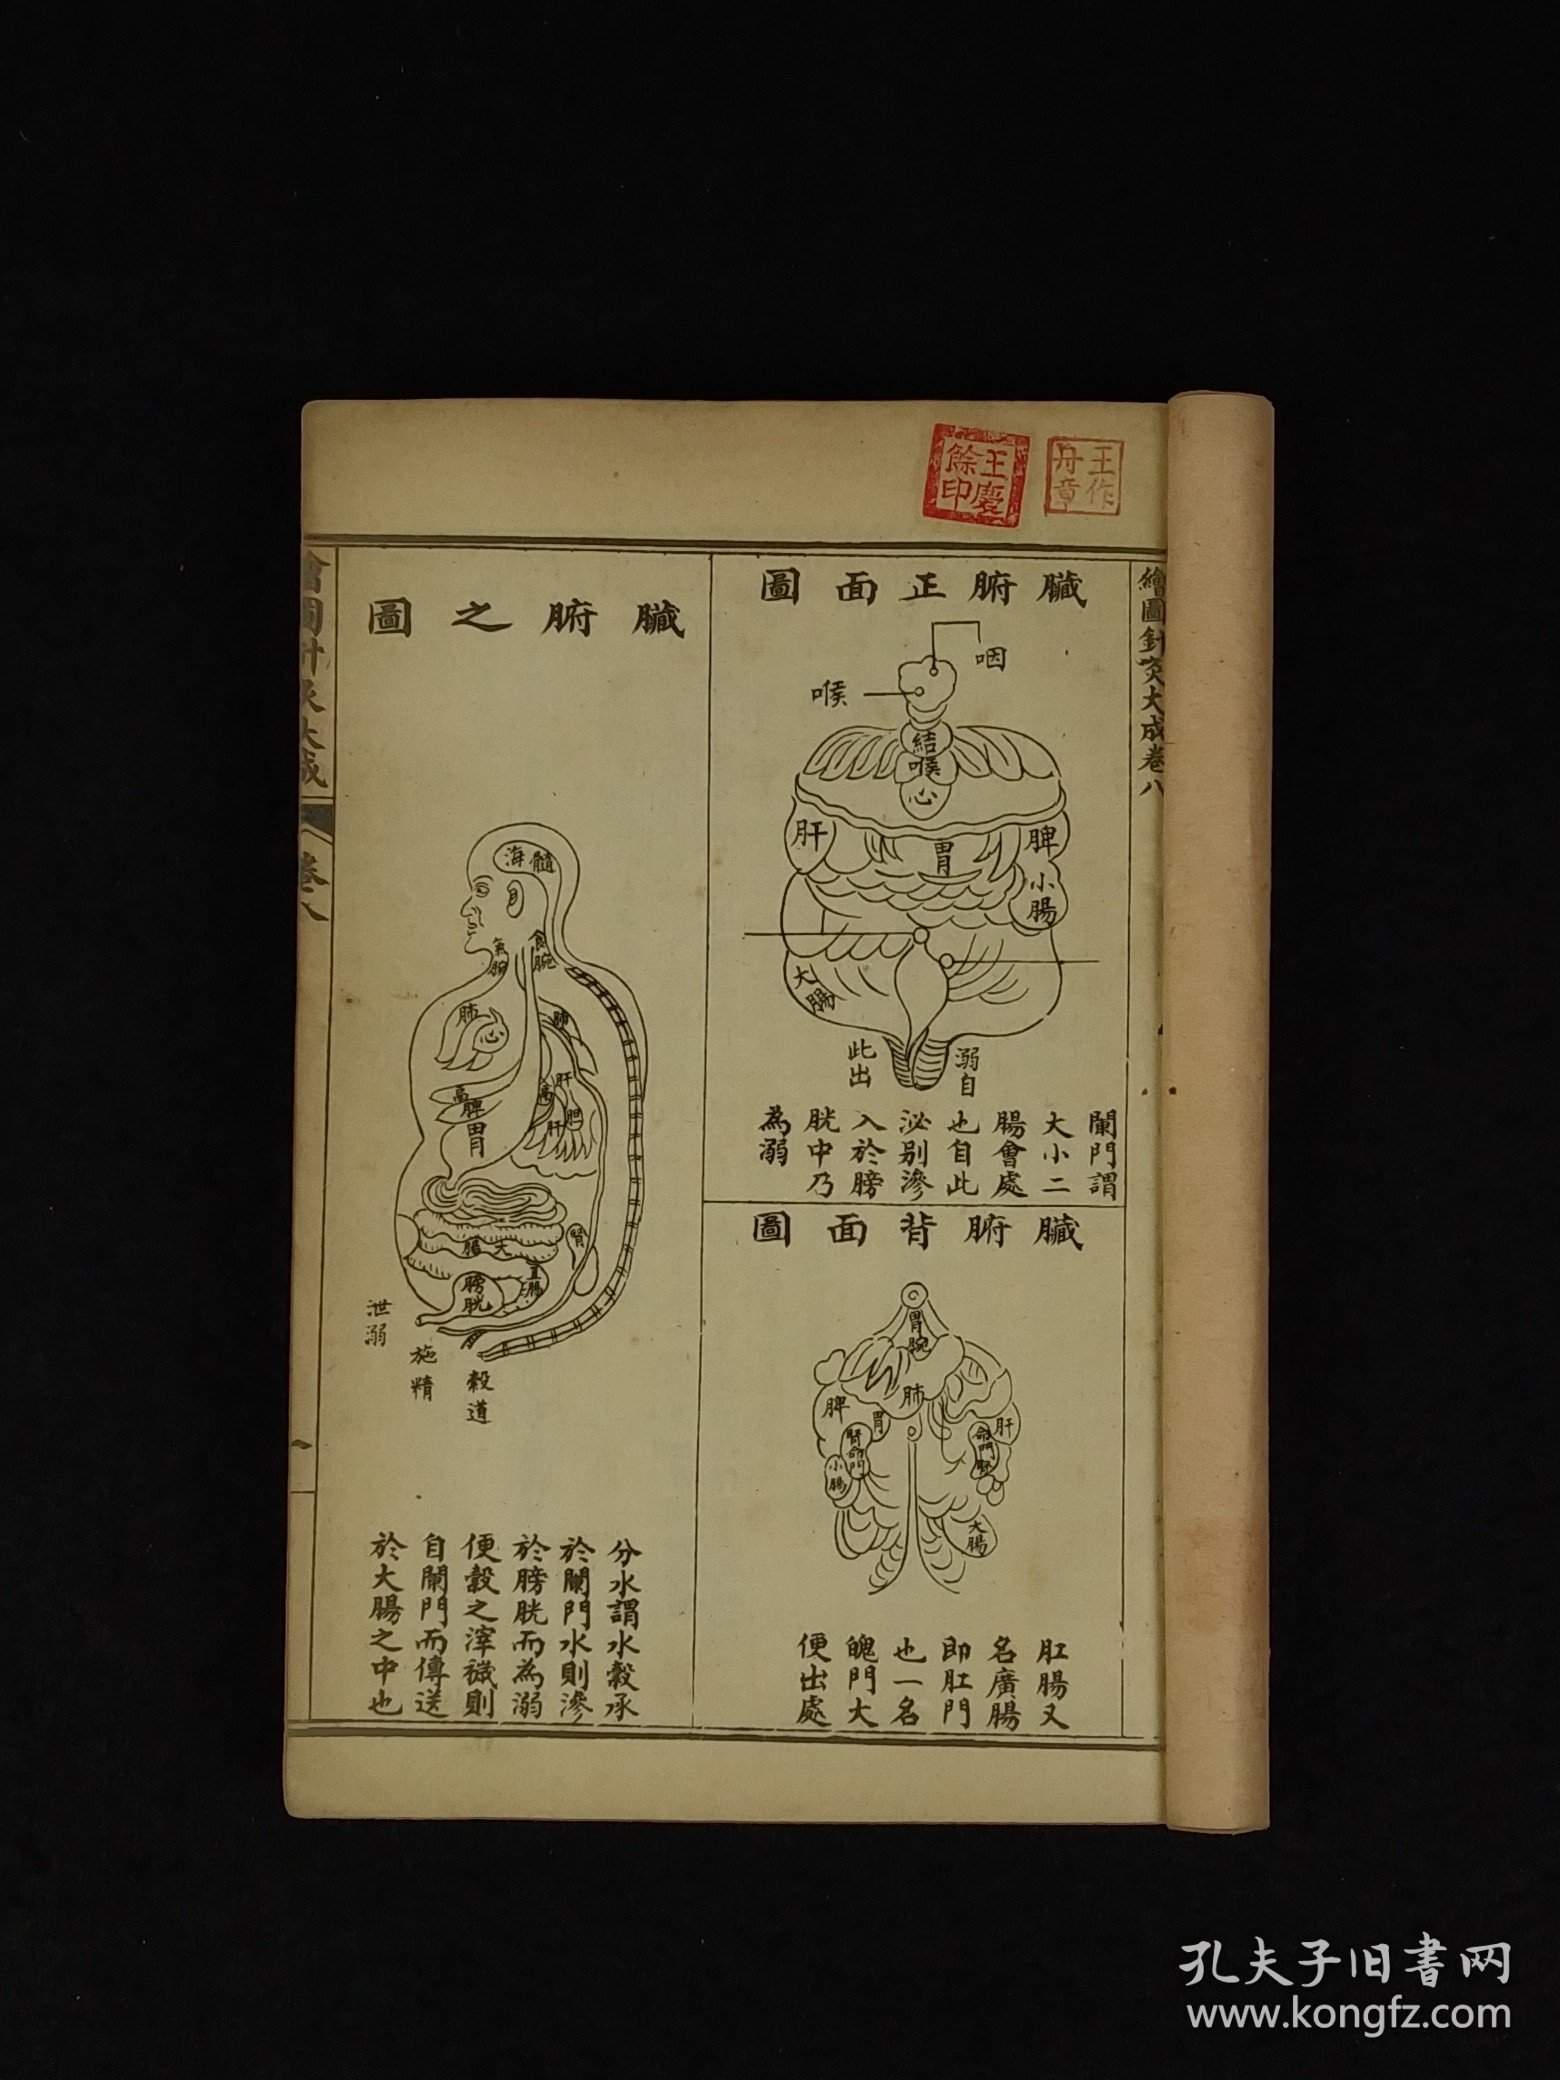 王作
舟章
王慶
餘印
繪圖針灸大成卷八
臟腑正面圖
咽
喉
結喉
心
肝
胃
脾
小腸
大腸
溺自
此出
闌門謂
大小二
腸會處
也自此
泌別滲
入於膀
胱中乃
為溺
臟腑背面圖
胃脘
肺
脾
胃
肝
腎
命門
命門
腎
小腸
大腸
肛腸又
名廣腸
即肛門
也一名
魄門大
便出處
臟腑之圖
髓海
食脘
氣脘
肺
心
肺
肝
膽
肝
鬲
鬲
脾
胃
腎
大腸
直腸
膀胱
泄溺
施精
穀道
分水謂水穀承
於闌門水則滲
於膀胱而為溺
便穀之滓穢則
自闌門而傳送
於大腸之中也
繪圖針灸大成
卷八
一
孔夫子旧书网
www.kongfz.com